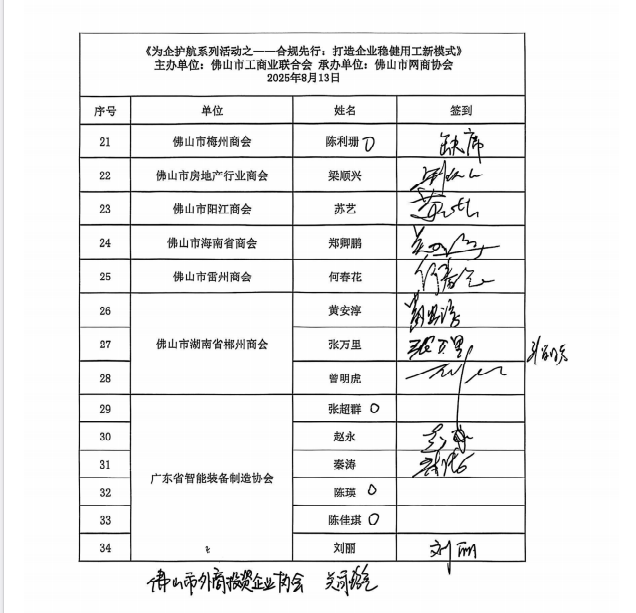 《为企护航系列活动之——合规先行：打造企业稳健用工新模式》
主办单位：佛山市工商业联合会 承办单位：佛山市网商协会
2025年8月13日
序号 单位 姓名 签到
21 佛山市梅州商会 陈利珊 缺席
22 佛山市房地产行业商会 梁顺兴
23 佛山市阳江商会 苏艺
24 佛山市海南省商会 郑卿鹏
25 佛山市雷州商会 何春花 何春花
26 佛山市湖南省郴州商会 黄安淳 黄安淳
27 张万里 张万里
28 曾明虎
29 广东省智能装备制造协会 张超群
30 赵永
31 秦涛
32 陈瑛
33 陈佳琪
34 刘丽 刘丽
佛山市外商投资企业协会